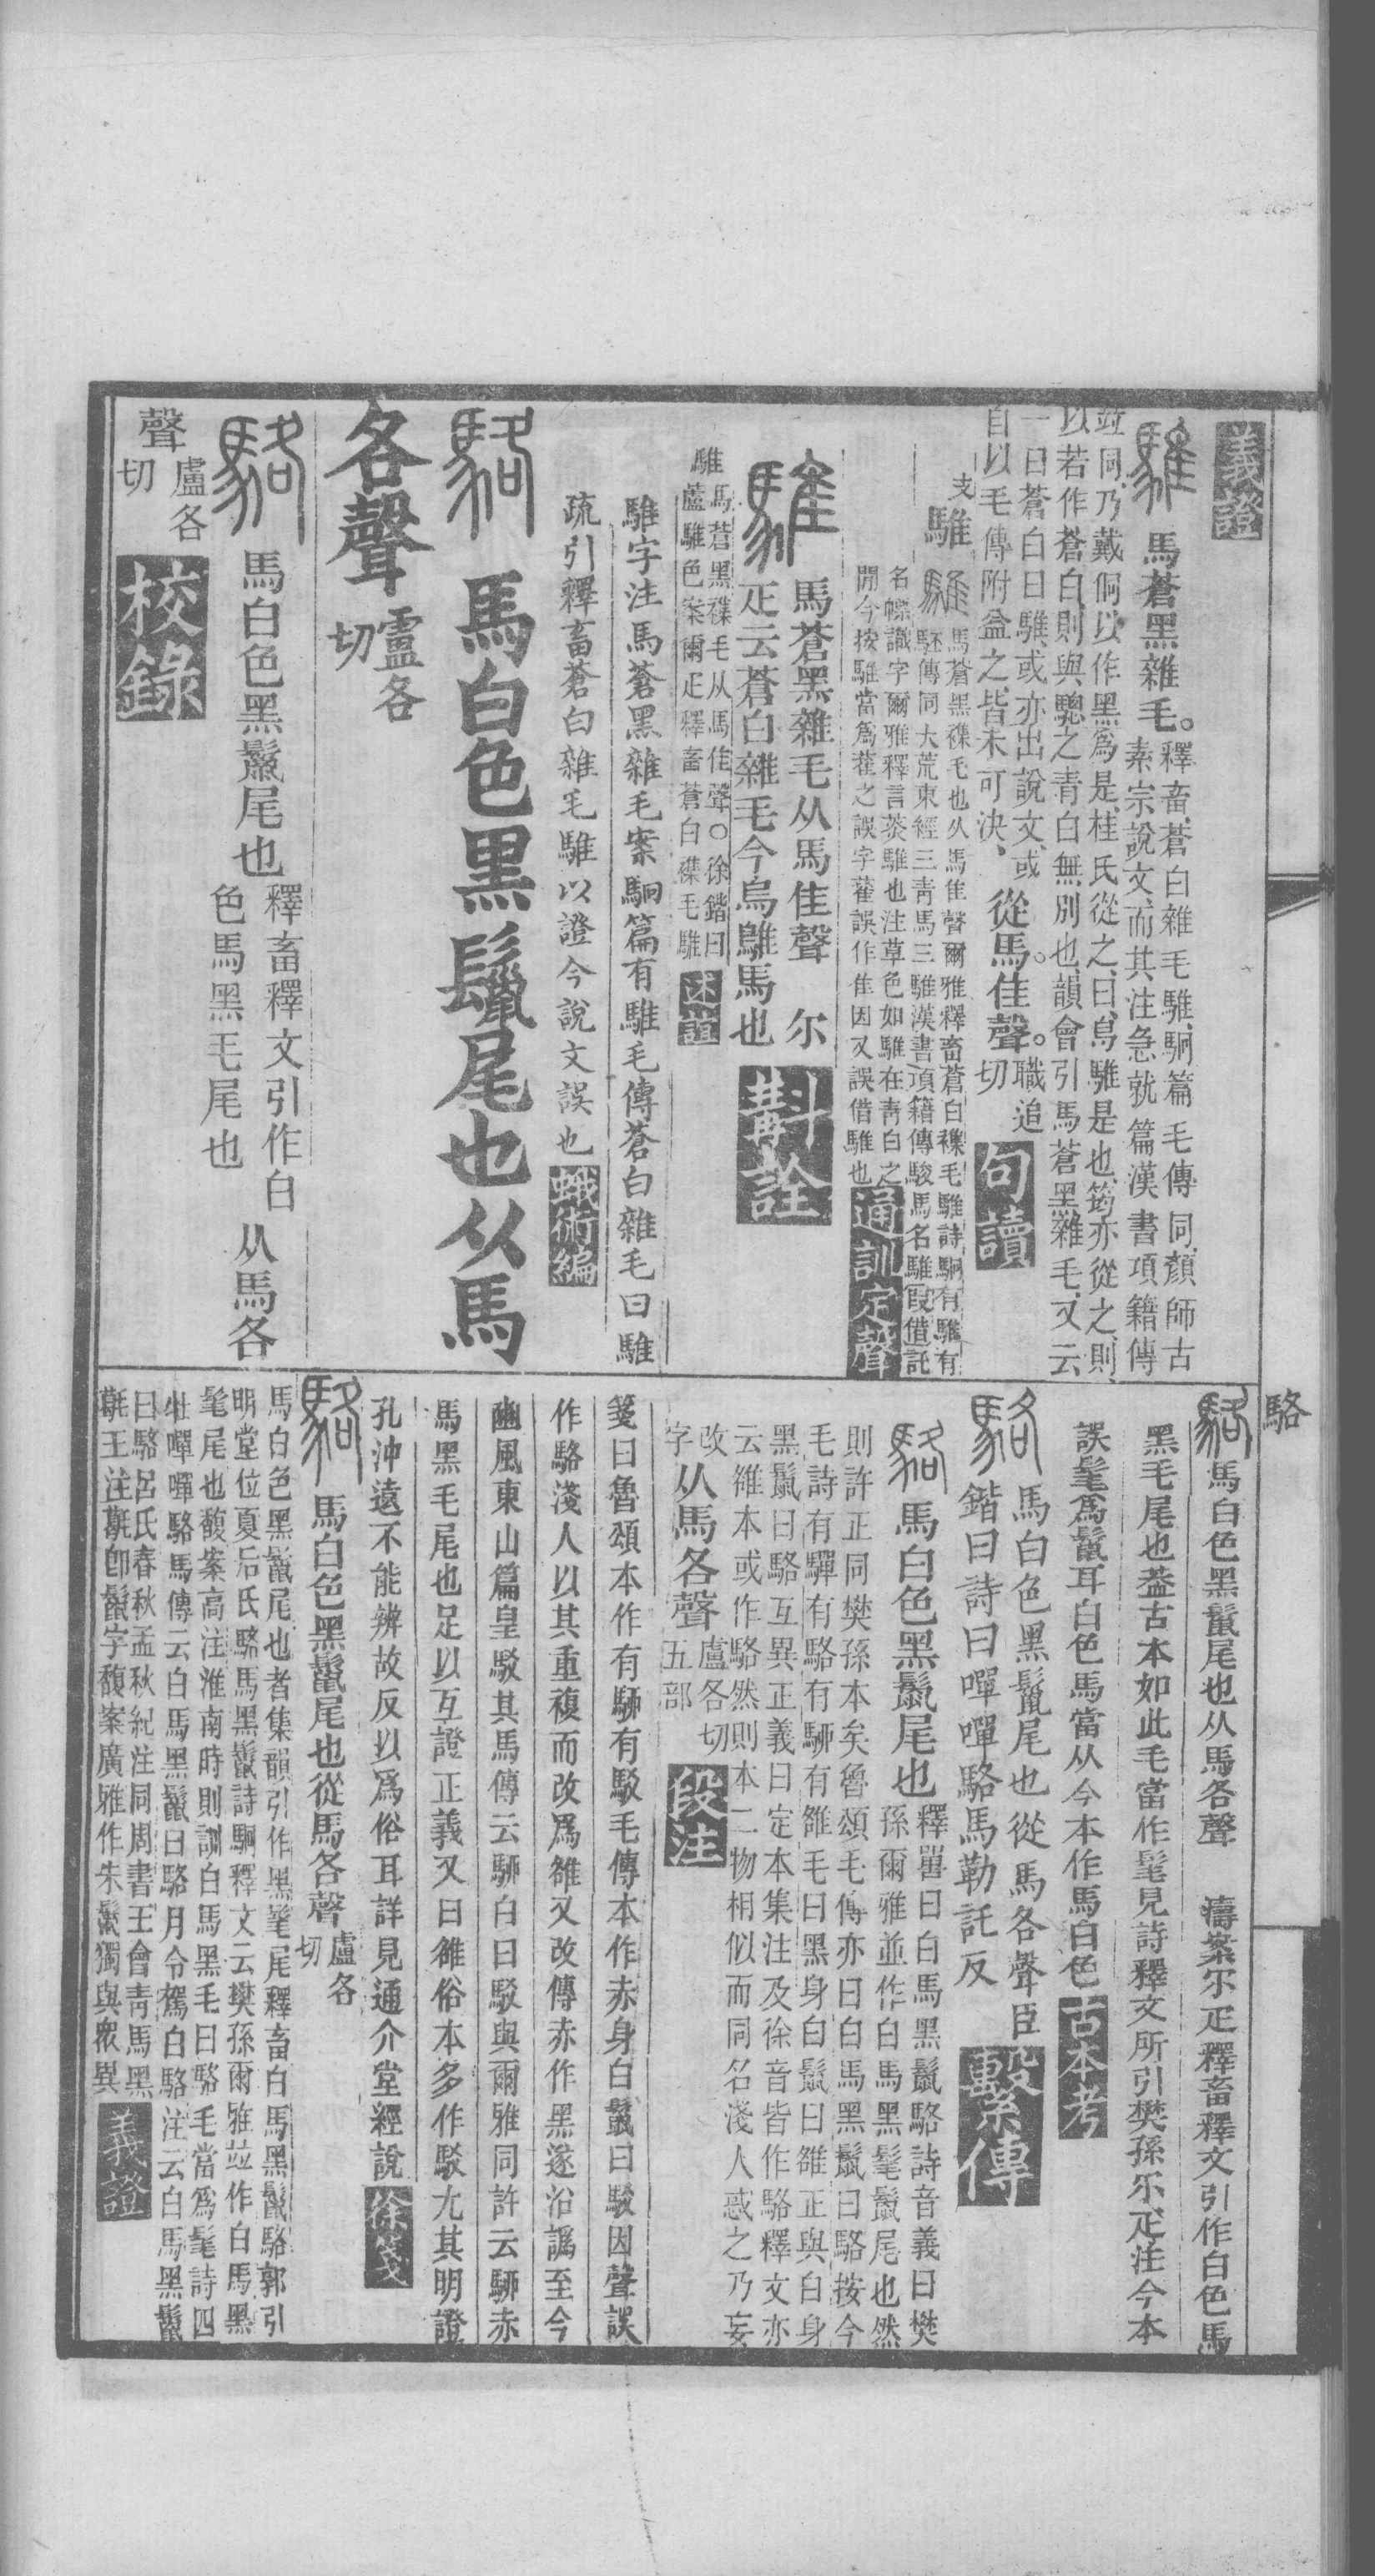 義證
騅 馬蒼黑雜毛。釋畜、蒼白雜毛騅、駉篇毛傳同、顏師古
素宗說文、而其注急就篇漢書項籍傳
竝同、乃戴侗以作黑為是、桂氏從之、曰、烏騅是也、筠亦從之、則
以若作蒼白、則與驄之青白無別也、韻會引馬蒼黑雜毛、又云
一曰蒼白曰騅、或亦出說文、或
自以毛傳附益之、皆未可決、
從馬隹聲。職追
切
句讀
支
騅
騅 馬蒼黑襍毛也从馬隹聲爾雅釋畜蒼白襍毛騅詩駉有騅有
駓傳同大荒東經三青馬三騅漢書項籍傳駿馬名騅叚借託
名幖識字爾雅釋言菼騅也注草色如騅在青白之
閒今按騅當為萑之誤字萑誤作隹因又誤借騅也
通訓定聲
騅 馬蒼黑雜毛从馬隹聲 尔
疋云蒼白雜毛今烏騅馬也
斠詮
騅 馬蒼黑襍毛从馬隹聲○徐鍇曰
蘆騅色案爾疋釋畜蒼白襍毛騅
述誼
騅字注馬蒼黑雜毛案駉篇有騅毛傳蒼白雜毛曰騅
疏引釋畜蒼白雜毛騅以證今說文誤也
蛾術編
駱 馬白色黑鬣尾也从馬
各聲盧各
切
駱 馬白色黑鬣尾也釋畜釋文引作白
色馬黑毛尾也
从馬各
聲盧各
切
校錄
駱
駱 馬白色黑鬣尾也从馬各聲 濤案尔疋釋畜釋文引作白色馬
黑毛尾也葢古本如此毛當作髦見詩釋文所引樊孫尔疋注今本
誤髦為鬣耳白色馬當从今本作馬白色
古本考
駱 馬白色黑鬣尾也從馬各聲臣
鍇曰詩曰嘽嘽駱馬勒託反
繫傳
駱 馬白色黑鬣尾也釋嘼曰白馬黑鬣駱詩音義曰樊
孫爾雅並作白馬黑髦鬣尾也然
則許正同樊孫本矣魯頌毛傳亦曰白馬黑鬣曰駱按今
毛詩有驒有駱有駵有雒毛曰黑身白鬣曰雒正與白身
黑鬣曰駱互異正義曰定本集注及徐音皆作駱釋文亦
云雒本或作駱然則本二物相似而同名淺人惑之乃妄
改
字
从馬各聲盧各切
五部
段注
箋曰魯頌本作有駵有駁毛傳本作赤身白鬣曰駁因聲誤
作駱淺人以其重複而改為雒又改傳赤作黑遂沿譌至今
豳風東山篇皇駁其馬傳云駵白曰駁與爾雅同許云駵赤
馬黑毛尾也足以互證正義又曰雒俗本多作駁尤其明證
孔沖遠不能辨故反以為俗耳詳見通介堂經說
徐箋
駱 馬白色黑鬣尾也從馬各聲盧各
切
馬白色黑鬣尾也者集韻引作黑髦尾釋畜白馬黑鬣駱郭引
明堂位夏后氏駱馬黑鬣詩駉釋文云樊孫爾雅竝作白馬黑
髦尾也馥案高注淮南時則訓白馬黑毛曰駱毛當為髦詩四
牡嘽嘽駱馬傳云白馬黑鬣曰駱月令駕白駱注云白馬黑鬣
曰駱呂氏春秋孟秋紀注同周書王會青馬黑
㲠王注㲠卽鬣字馥案廣雅作朱鬣獨與眾異
義證